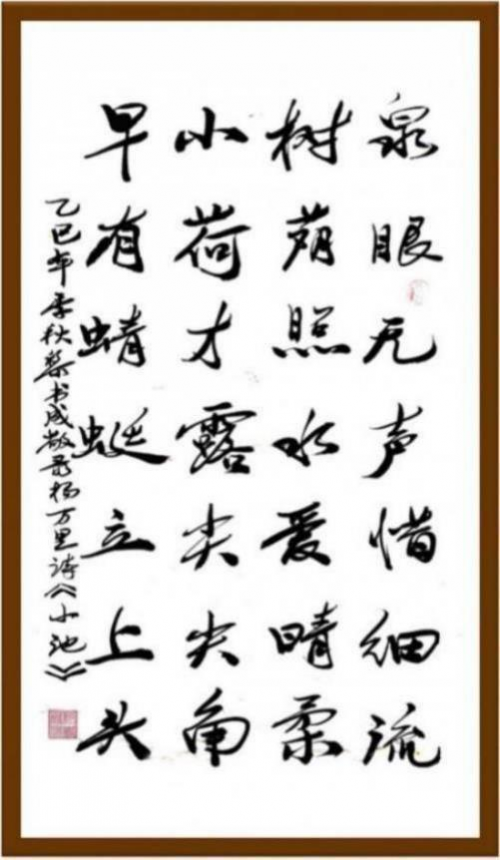 泉眼无声惜细流
树荫照水爱晴柔
小荷才露尖尖角
早有蜻蜓立上头
乙巳年季秋书成敬录杨万里诗《小池》